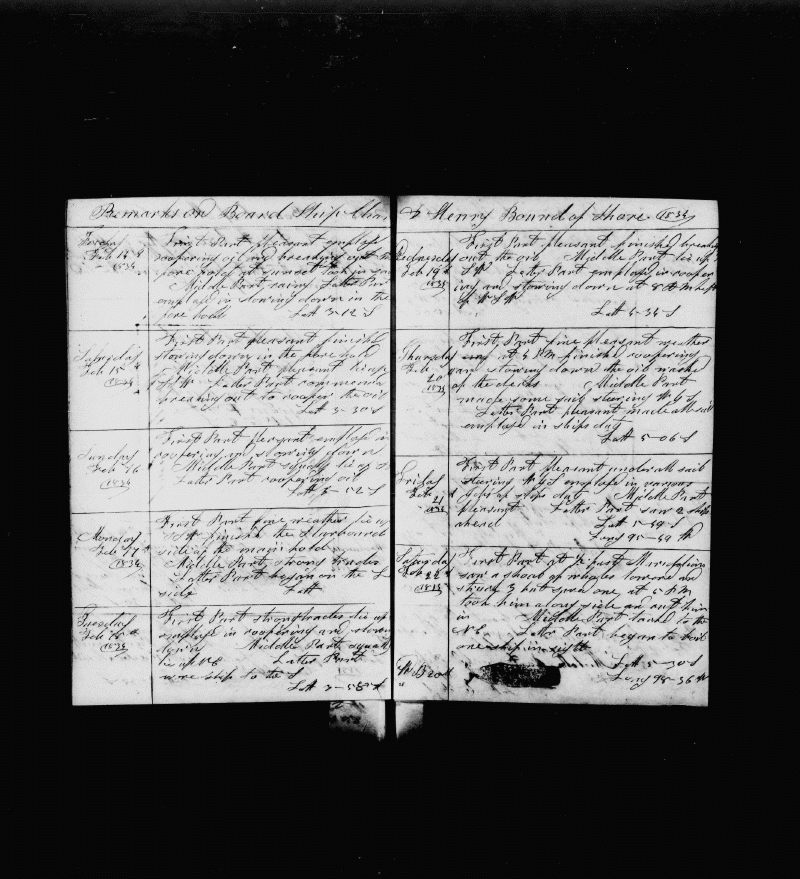 Remarks on Board Ship Char
Friday
Feb 14th
1834
First Part pleasant employd
coopering oil and breaking out the
fore hold at sunset took in sail
Middle Part rainy Latter Part
employd in stowing down in the
fore hold Latt 3-12 S
Saturday
Feb 15th
1834
First Part pleasant finishd
stowing down in the fore hold
Middle Part pleasant
SW Latter Part commenced
breaking out to cooper the oil
Latt 3-30 S
Sunday
Feb 16
1834
First Part plesant employd in
coopering and stowing down
Middle Part squaly
Latter Part coopering oil
Latt 3-52 S
Monday
Feb 17th
1834
First Part fine weather
finish the starboard
side of the main hold
Middle Part strong trades
Latter Part began on the L
side Latt
Tuesday
Feb 18th
1834
First Part strong trades
employd in coopering and stowing
down Middle Part squally
Latter Part
wore ship to the S
Latt
& Henry Bound of Shore 1834
Wednesday
Feb 19th
1834
First Part pleasant finished breaking
out the oil Middle Part
SW Latter Part employd in cooper
ing and stowing down at 8 AM
Latt 4-34 S
Thursday
Feb 20
1834
First Part fine pleasant weather
at 4 PM finishd coopering
and stowing down the oil washd
of the decks Middle Part
made some sail steering
Latter Part pleasant made all sail
employd in ships duty
Latt 5-06 S
Friday
Feb 21
1834
First Part plesent under all sail
steering employd in various
jobs of ships duty Middle Part
pleasant Latter Part saw a ship
ahead Latt 5-39 S
Long 95-59 W
Saturday
Feb 22d
1834
First Part at
saw a shoal of whales lowerd and
struck 3 but savd one at 5 PM
took him along side and cut him
in Middle Part tackd to the
NE Latter Part began to boil
one ship in sight
Latt 5-30 S
Long 95-36 W